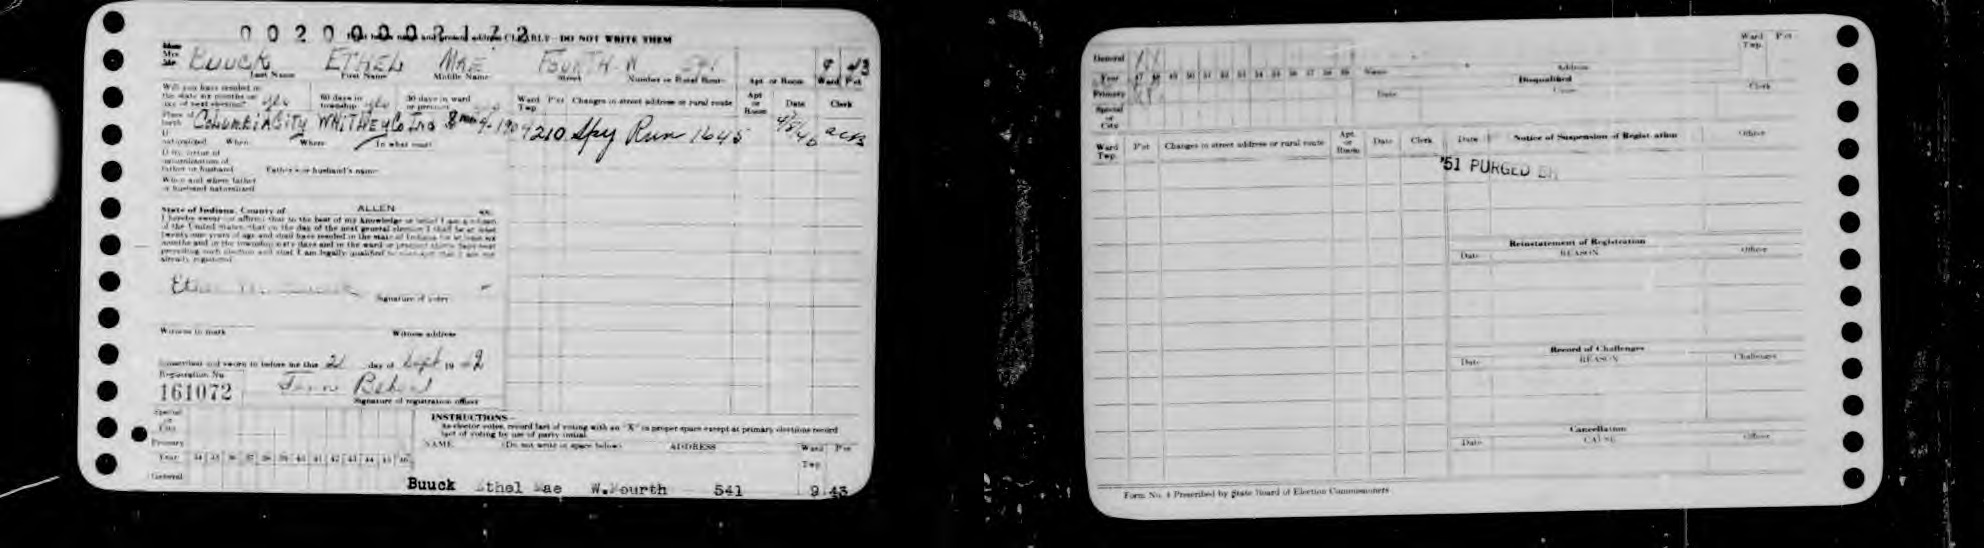 0020002172
names and present address CLEARLY - DO NOT WRITE THEM
Mrs.
BUUCK ETHEL MAE FOURTH-W 541 9 43
Last Name First Name Middle Name Street Number or Rural Route Apt. or Room Ward Pct
Will you have resided in
the state six months on
day of next election? yes
60 days in
township yes
30 days in ward
or precinct
Ward
Twp. Pct Changes in street address or rural route Apt
or
Room Date Clerk
Place of
birth COLUMBIA CITY WHITLEY CO IND
210 Spy Run 1645
If
naturalized When Where In what court
If by virtue of
naturalization of
father or husband Father's or husband's name
When and where father
or husband naturalized
State of Indiana, County of ALLEN ss:
I hereby swear or affirm that to the best of my knowledge or belief I am a citizen
of the United States, that on the day of the next general election I shall be at least
twenty-one years of age and shall have resided in the state of Indiana for at least six
months and in the township sixty days and in the ward or precinct thirty days next
preceding such election and that I am legally qualified to
already registered
Signature of voter
Witness to mark Witness address
Subscribed and sworn to before me this 21 day of Sept 19 42
Registration No.
161072
Signature of registration officer
Special
or
City
Primary
Year 34 35 36 37 38 39 40 41 42 43 44 45 46
General
INSTRUCTIONS
As elector votes, record fact of voting with an "X" in proper space except at primary elections record
fact of voting by use of party initial.
NAME (Do not write in space below) ADDRESS Ward Pct
Twp.
Buuck Ethel Mae W.Fourth 541 9 43
Ward Pct
Twp.
General X X
Year 47 48 49 50 51 52 53 54 55 56 57 58 59 Name Address
Primary
Special
or
City
Disqualified
Date Cause Clerk
Ward
Twp. Pct Changes in street address or rural route Apt.
or
Room Date Clerk Date Notice of Suspension of Registration Officer
'51 PURGED
Reinstatement of Registration
Date REASON Officer
Record of Challenges
Date REASON Challenger
Cancellation
Date CAUSE Officer
Form No. 4 Prescribed by State Board of Election Commissioners